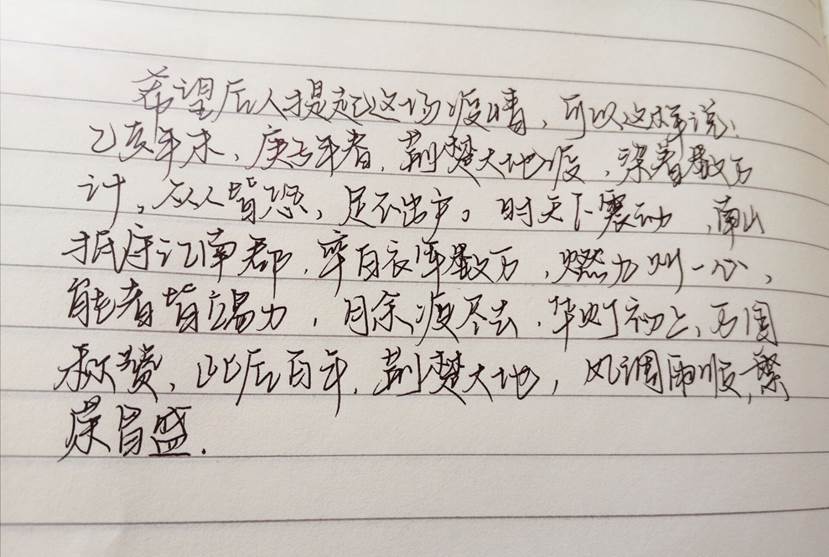 希望后人提起这场疫情,可以这样说:
乙亥年末,庚子年春,荆楚大地疫,染者数万
计,众人皆恐,足不出户。时天下震动,南山
抵守江南都,率白衣军数万,燃力川一心,
能者皆竭力,月余疫尽去,华灯初上,万国
称赞,此后百年,荆楚大地,风调雨顺,繁
荣昌盛.